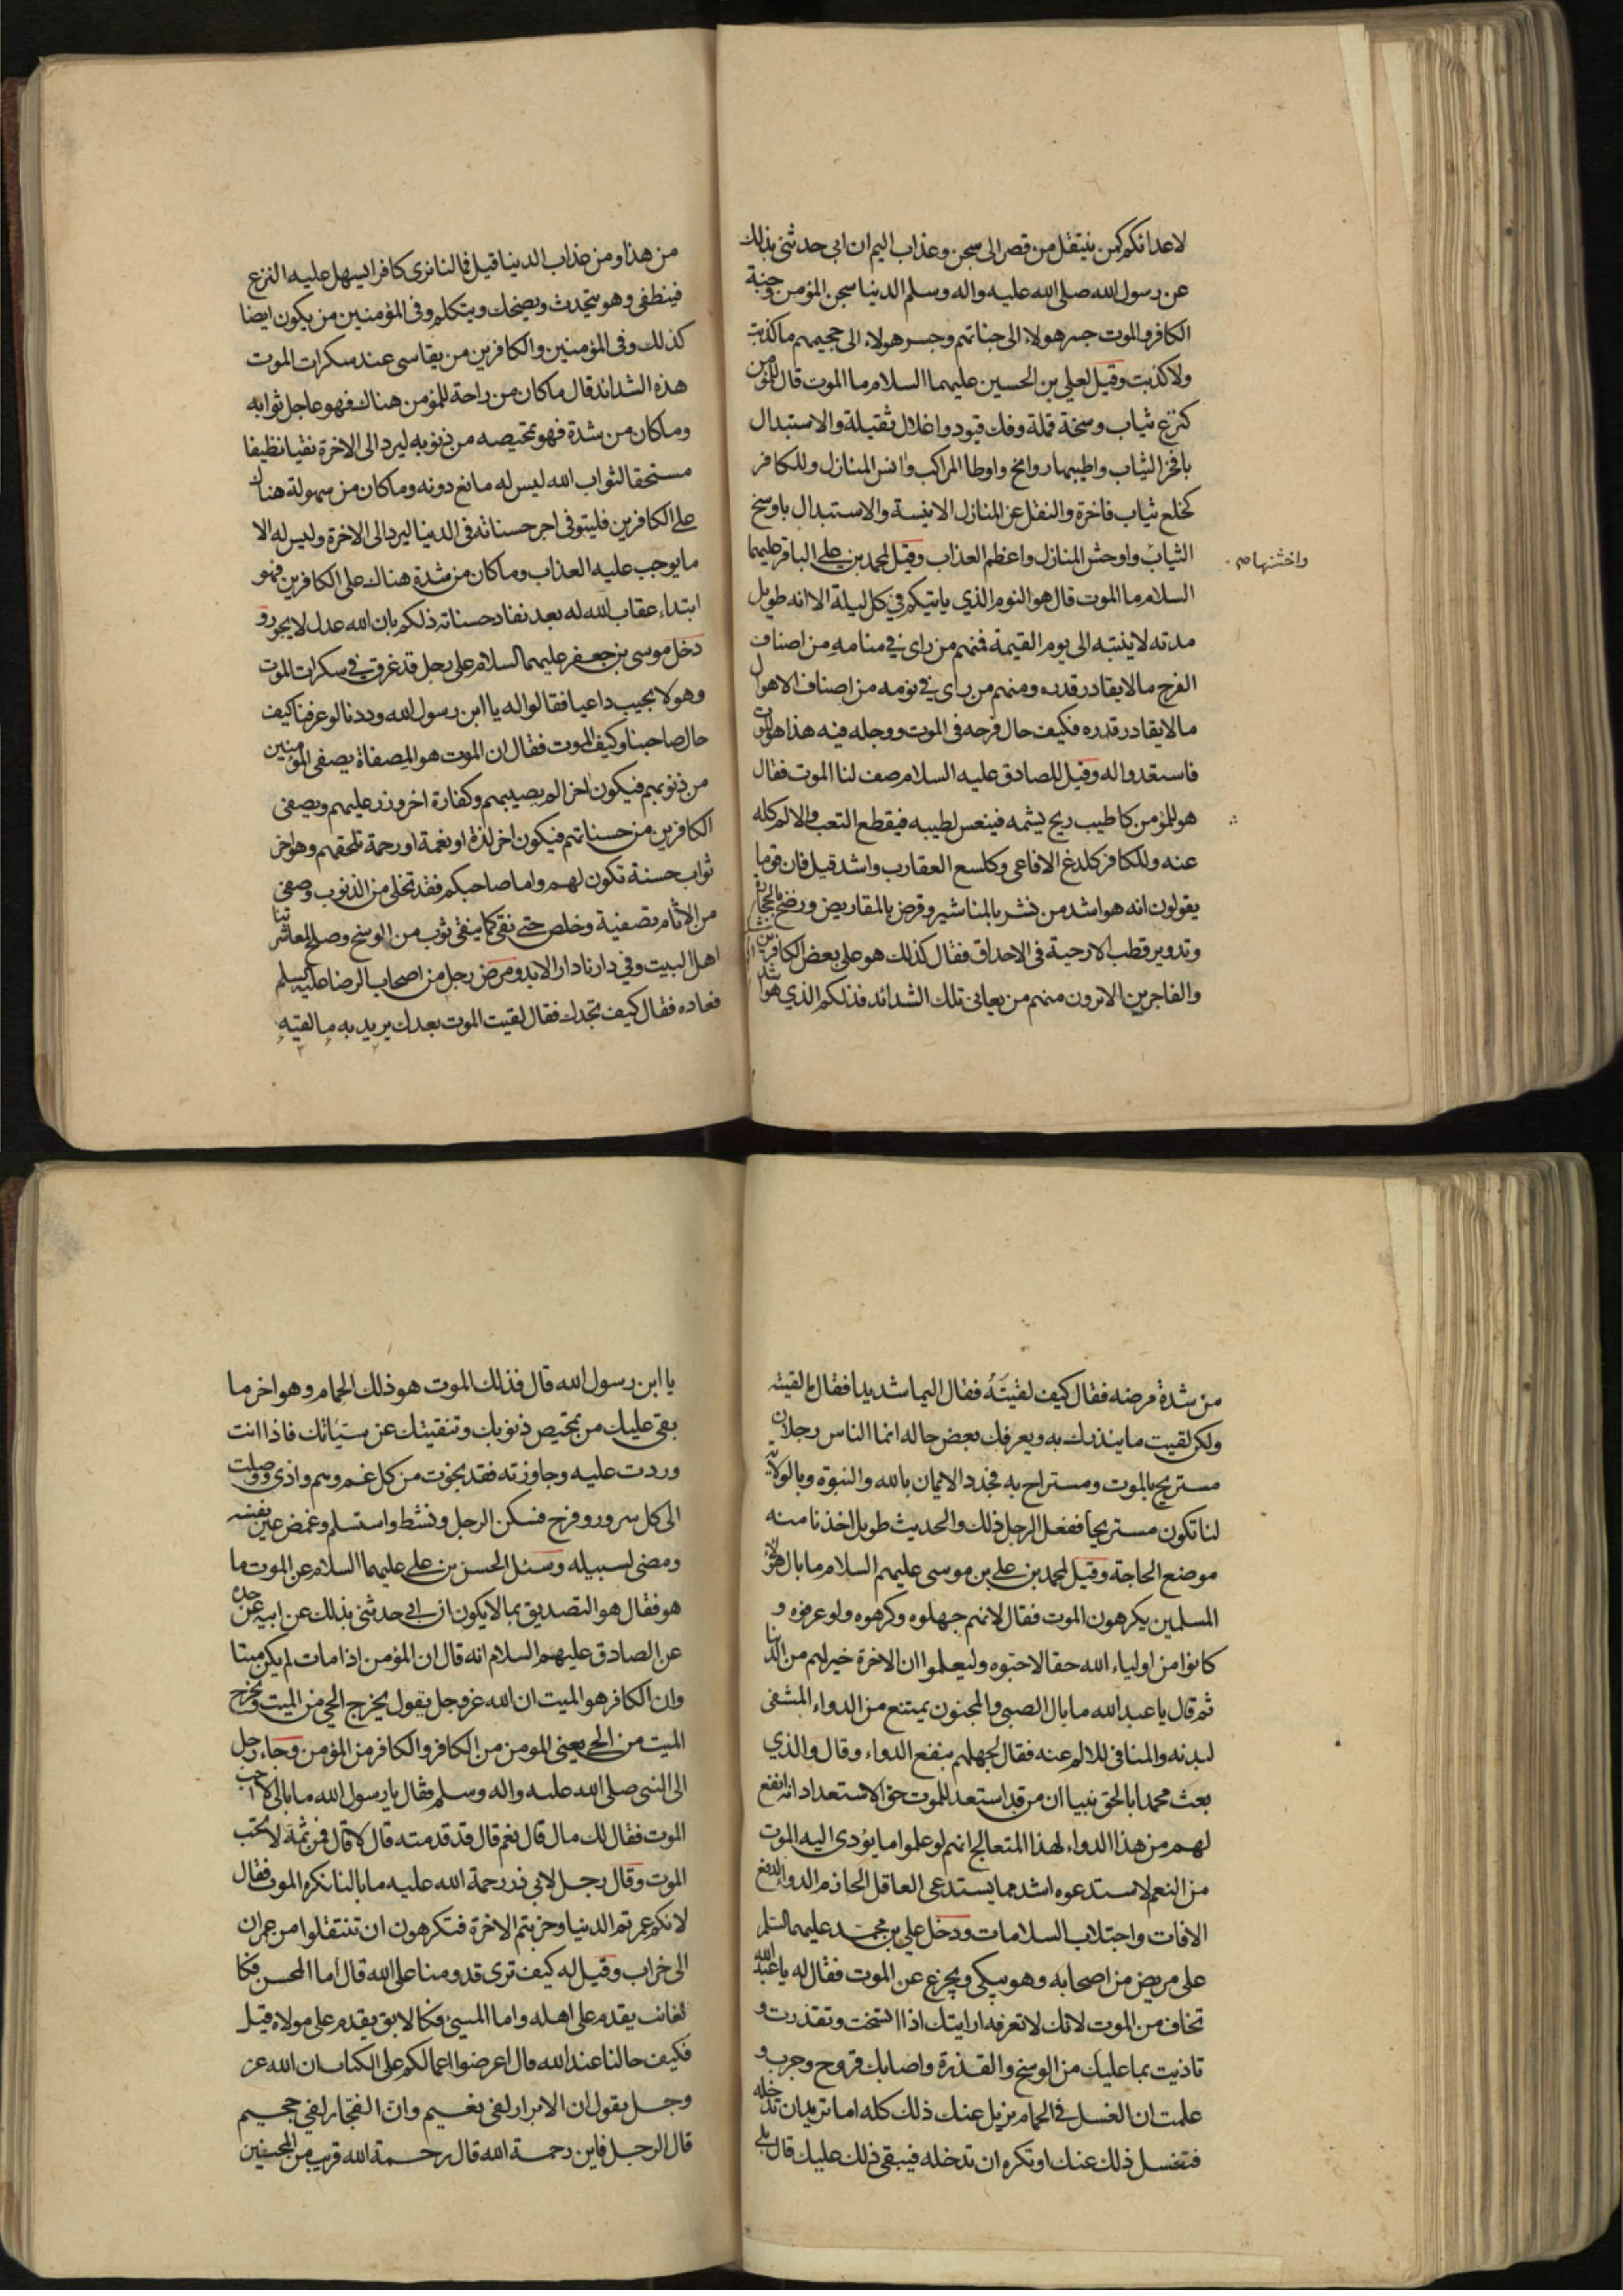 لاعدائكم كمن ينتقل من قصر الى سجن وعذاب اليم ان ابى حدثنى بذلك
عن رسول الله صلى الله عليه واله وسلم الدنيا سجن المؤمن وجنة
الكافر والموت جسر هولاء الى جناتهم وجسر هولاء الى جحيمهم ما كذبت
ولا كذبت وقيل لعلي بن الحسين عليهما السلام ما الموت قال للمؤمن
كنزع ثياب وسخة قملة وفك قيود واغلال ثقيلة والاستبدال
بافخر الثياب واطيبها روايح واوطا المراكب وانس المنازل وللكافر
كخلع ثياب فاخرة والنقل عن المنازل الانيسة والاستبدال باوسخ
الثياب واوحش المنازل واعظم العذاب وقيل لمحمد بن على الباقر عليهما
واخشنها صح
السلام ما الموت قال هو النوم الذي ياتيكم في كل ليلة الا انه طويل
مدته لا ينتبه الى يوم القيمة فمنهم من راى في منامه من اصناف
الفرح ما لا يقادر قدره ومنهم من راى في نومه من اصناف الاهوال
ما لا يقادر قدره فكيف حال فرحه فى الموت ووجله فيه هذا هو الموت
فاستعدوا له وقيل للصادق عليه السلام صف لنا الموت فقال
هو للمؤمن كاطيب ريح يشمه فينعس لطيبه فيقطع التعب والالم كله
عنه وللكافر كلدغ الافاعى وكلسع العقارب واشد قيل فان قوما
يقولون انه هو اشد من نشر بالمناشير وقرض بالمقاريض ورضخ بالحجارة
وتدوير قطب الارحية فى الاحداق فقال كذلك هو على بعض الكافرين
والفاجرين الا ترون منهم من يعانى تلك الشدائد فذلكم الذي هو اشد
من هذا ومن عذاب الدنيا قيل فما لنا نرى كافرا يسهل عليه النزع
فينطفى وهو يتحدث ويضحك ويتكلم وفى المؤمنين من يكون ايضا
كذلك وفى المؤمنين والكافرين من يقاسى عند سكرات الموت
هذه الشدائد قال ما كان من راحة للمؤمن هناك فهو عاجل ثوابه
وما كان من شدة فهو تمحيصه من ذنوبه ليرد الى الاخرة نقيا نظيفا
مستحقا لثواب الله ليس له مانع دونه وما كان من سهولة هناك
على الكافرين فليتوفى اجر حسناته فى الدنيا ليرد الى الاخرة وليس له الا
ما يوجب عليه العذاب وما كان من شدة هناك على الكافرين فهو
ابتداء عقاب الله له بعد نفاد حسناته ذلكم بان الله عدل لا يجور و
دخل موسى بن جعفر عليهما السلام على رجل قد غرق في سكرات الموت
وهو لا يجيب داعيا فقالوا له يا ابن رسول الله وددنا لو عرفنا كيف
حال صاحبنا وكيف الموت فقال ان الموت هو المصفاة يصفى المؤمنين
من ذنوبهم فيكون اخر الم يصيبهم وكفارة اخر وزر عليهم ويصفى
الكافرين من حسناتهم فيكون اخر لذة او نعمة او رحمة تلحقهم وهو اخر
ثواب حسنة تكون لهم واما صاحبكم فقد تخلى من الذنوب وصفى
من الاثام تصفية وخلص حتى نقى كما ينقى ثوب من الوسخ وصلح لمعاشرتنا
اهل البيت وفي دارنا دار الابد ومرض رجل من اصحاب الرضا عليه السلم
فعاده فقال كيف تجدك فقال لقيت الموت بعدك يريد به ما لقيه
من شدة مرضه فقال كيف لقيته فقال اليما شديدا فقال ما لقيته
ولكن لقيت ما ينذرك به ويعرفك بعض حاله انما الناس رجلان
مستريح بالموت ومستراح به فجدد الايمان بالله والنبوة وبالولاية
لنا تكون مستريحا ففعل الرجل ذلك والحديث طويل اخذنا منه
موضع الحاجة وقيل لمحمد بن علي بن موسى عليهم السلام ما بال هؤلاء
المسلمين يكرهون الموت فقال لانهم جهلوه وكرهوه ولو عرفوه و
كانوا من اولياء الله حقا لاحبوه وليعلموا ان الاخرة خير لهم من الدنيا
ثم قال يا عبد الله ما بال الصبي والمجنون يمتنع من الدواء المشفى
لبدنه والمنافى للالم عنه فقال لجهلهم بنفع الدواء وقال والذي
بعث محمدا بالحق نبيا ان من قد استعد للموت حق الاستعداد انه انفع
لهم من هذا الدواء لهذا المتعالج انهم لو علموا ما يؤدى اليه الموت
من النعم لاستدعوه اشد مما يستدعى العاقل الحازم الدواء لدفع
الافات واجتلاب السلامات ودخل علي بن محمد عليهما السلم
على مريض من اصحابه وهو يبكى ويجزع عن الموت فقال له يا عبد الله
تخاف من الموت لانك لا تعرفه ارايتك اذا اتسخت وتقذرت و
تاذيت بما عليك من الوسخ والقذرة واصابك قروح وجرب و
علمت ان الغسل في الحمام يزيل عنك ذلك كله اما تريد ان تدخله
فتغسل ذلك عنك او تكره ان تدخله فيبقى ذلك عليك قال بلى
يا ابن رسول الله قال فذلك الموت هو ذلك الحمام وهو اخر ما
بقى عليك من تمحيص ذنوبك وتنقيتك عن سيئاتك فاذا انت
وردت عليه وجاوزته فقد نجوت من كل غم وهم واذى ووصلت
الى كل سرور وفرح فسكن الرجل ونشط واستسلم وغمض عين نفسه
ومضى لسبيله وسئل الحسن بن على عليهما السلام عن الموت ما
هو فقال هو التصديق بما لا يكون ان ابي حدثنى بذلك عن ابيه عن جده
عن الصادق عليهم السلام انه قال ان المؤمن اذا مات لم يكن ميتا
وان الكافر هو الميت ان الله عز وجل يقول يخرج الحي من الميت ويخرج
الميت من الحي يعنى المومن من الكافر والكافر من المؤمن وجاء رجل
الى النبى صلى الله عليه واله وسلم فقال يا رسول الله ما بالى لا احب
الموت فقال لك مال قال نعم قال قد قدمته قال لا قال فمن ثمة لا تحب
الموت وقال رجل لابي ذر رحمة الله عليه ما بالنا نكره الموت فقال
لانكم عمرتم الدنيا وخربتم الاخرة فتكرهون ان تنتقلوا من عمران
الى خراب وقيل له كيف ترى قدومنا على الله قال اما المحسن فكا
لغائب يقدم على اهله واما المسيئ فكالابق يقدم على مولاه قيل
فكيف حالنا عند الله قال اعرضوا اعمالكم على الكتاب ان الله عز
وجل يقول ان الابرار لفى نعيم وان الفجار لفي جحيم
قال الرجل فاين رحمة الله قال رحمة الله قريب من المحسنين